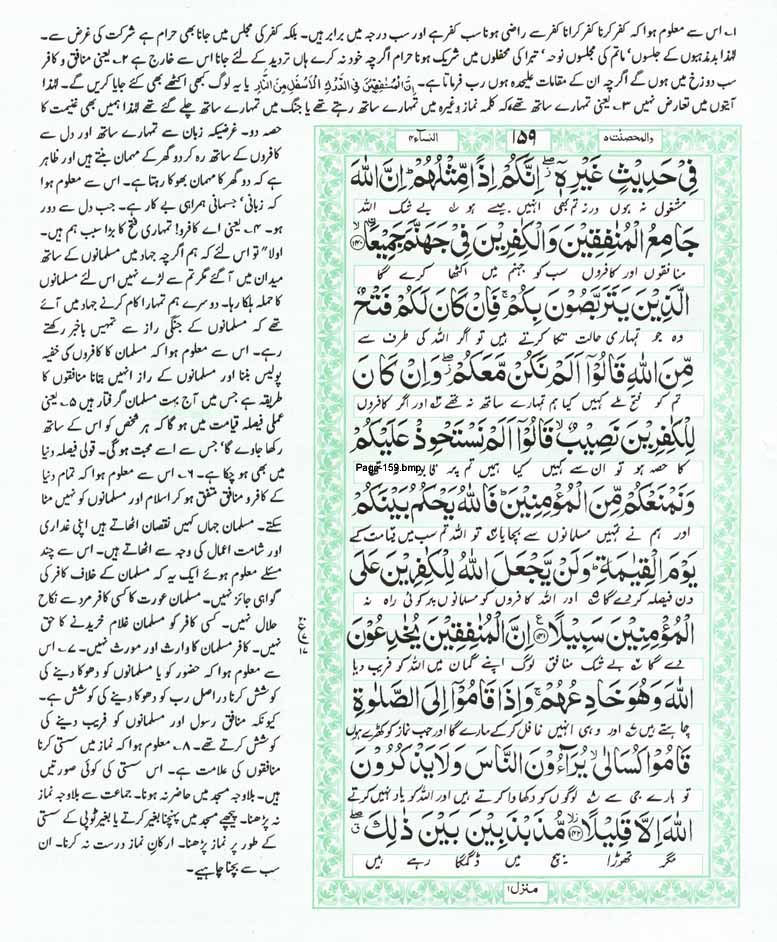 ۱۔ اس سے معلوم ہوا کہ کفر کرنا کفر کرانا کفر سے راضی ہونا سب کفر ہے اور سب درجہ میں برابر ہیں۔ بلکہ کفر کی مجلس میں جانا بھی حرام ہے شرکت کی غرض سے۔
لہٰذا بدمذہبوں کے جلسوں، ماتم کی مجلسوں نوحہ، تبرا کی محفلوں میں شریک ہونا حرام اگرچہ خود نہ کرے ہاں تردید کے لئے جانا اس سے خارج ہے ۲۔ یعنی منافق و کافر
سب دوزخ میں ہوں گے اگرچہ ان کے مقامات علیحدہ ہوں رب فرماتا ہے۔ اِنَّ الْمُنٰفِقِیْنَ فِی الدَّرْكِ الْاَسْفَلِ مِنَ النَّارِ یا یہ لوگ کبھی اکٹھے بھی کئے جایا کریں گے۔ لہٰذا
آیتوں میں تعارض نہیں ۳۔ یعنی تمہارے ساتھ تھے کہ کلمہ نماز وغیرہ میں تمہارے ساتھ رہتے تھے یا جنگ میں تمہارے ساتھ چلے گئے تھے لہٰذا ہمیں بھی غنیمت کا
حصہ دو۔ غرضیکہ زبان سے تمہارے ساتھ اور دل سے
کافروں کے ساتھ رہ کر دو گھر کے مہمان بنتے ہیں اور ظاہر
ہے کہ دو گھر کا مہمان بھوکا رہتا ہے۔ اس سے معلوم ہوا
کہ زبانی، جسمانی ہمراہی بے کار ہے۔ جب دل سے دور
ہو۔ ۴۔ یعنی اے کافرو! تمہاری فتح کا بڑا سبب ہم ہیں۔
اولاً تو اس لئے کہ ہم اگرچہ جہاد میں مسلمانوں کے ساتھ
میدان میں آ گئے مگر تم سے لڑے نہیں اس لئے مسلمانوں
کا حملہ ہلکا رہا۔ دوسرے ہم تمہارا کام کرنے جہاد میں آئے
تھے کہ مسلمانوں کے جنگی راز سے تمہیں باخبر رکھتے
رہے۔ اس سے معلوم ہوا کہ مسلمان کا کافروں کی خفیہ
پولیس بننا اور مسلمانوں کے راز انہیں بتانا منافقوں کا
طریقہ ہے جس میں آج بہت مسلمان گرفتار ہیں ۵۔ یعنی
عملی فیصلہ قیامت میں ہو گا کہ ہر شخص کو اس کے ساتھ
رکھا جاوے گا، جس سے اسے محبت ہو گی۔ قولی فیصلہ دنیا
میں بھی ہو چکا ہے۔ ۶۔ اس سے معلوم ہوا کہ تمام دنیا
کے کافر و منافق متفق ہو کر اسلام اور مسلمانوں کو نہیں مٹا
سکتے۔ مسلمان جہاں کہیں نقصان اٹھاتے ہیں اپنی غداری
اور شامت اعمال کی وجہ سے اٹھاتے ہیں۔ اس سے چند
مسئلے معلوم ہوئے ایک یہ کہ مسلمان کے خلاف کافر کی
گواہی جائز نہیں۔ مسلمان عورت کا کسی کافر مرد سے نکاح
حلال نہیں۔ کسی کافر کو مسلمان غلام خریدنے کا حق
نہیں۔ کافر مسلمان کا وارث اور مورث نہیں۔ ۷۔ اس
سے معلوم ہوا کہ حضور کو یا مسلمانوں کو دھوکا دینے کی
کوشش کرنا دراصل رب کو دھوکا دینے کی کوشش ہے۔
کیونکہ منافق رسول اور مسلمانوں کو فریب دینے کی
کوشش کرتے تھے۔ ۸۔ معلوم ہوا کہ نماز میں سستی کرنا
منافقوں کی علامت ہے۔ اس سستی کی کوئی صورتیں
ہیں۔ بلاوجہ مسجد میں حاضر نہ ہونا۔ جماعت سے بلاوجہ نماز
نہ پڑھنا۔ پیچھے مسجد میں پہنچنا بغیر کرتے یا بغیر ٹوپی کے سستی
کے طور پر نماز پڑھنا۔ ارکان نماز درست نہ کرنا۔ ان
سب سے بچنا چاہیے۔
والمحصنٰت ۵ ۱۵۹ النساء ۴
فِیْ حَدِیْثٍ غَیْرِهٖۤ ۖ٘ اِنَّكُمْ اِذًا مِّثْلُهُمْ ؕ اِنَّ اللّٰهَ
مشغول نہ ہوں ورنہ تم بھی انہیں جیسے ہو ۱؎ بے شک اللہ
جَامِعُ الْمُنٰفِقِیْنَ وَالْكٰفِرِیْنَ فِیْ جَهَنَّمَ جَمِیْعَاۙ ﴿۱۴۰﴾
منافقوں اور کافروں سب کو جہنم میں اکٹھا کرے گا
الَّذِیْنَ یَتَرَبَّصُوْنَ بِكُمْ ۚ فَاِنْ كَانَ لَكُمْ فَتْحٌ
وہ جو تمہاری حالت تکا کرتے ہیں تو اگر اللہ کی طرف سے
مِّنَ اللّٰهِ قَالُوْۤا اَلَمْ نَكُنْ مَّعَكُمْ ۖ٘ وَاِنْ كَانَ
تم کو فتح ملے کہیں کیا ہم تمہارے ساتھ نہ تھے ۳؎ اور اگر کافروں
لِلْكٰفِرِیْنَ نَصِیْبٌ ۙ قَالُوْۤا اَلَمْ نَسْتَحْوِذْ عَلَیْكُمْ
کا حصہ ہو تو ان سے کہیں کیا ہمیں تم پر قابو
Page-159.bmp
وَنَمْنَعْكُمْ مِّنَ الْمُؤْمِنِیْنَ ؕ فَاللّٰهُ یَحْكُمُ بَیْنَكُمْ
اور ہم نے تمہیں مسلمانوں سے بچایا ۴؎ تو اللہ تم سب میں قیامت کے
یَوْمَ الْقِیٰمَةِ ؕ وَلَنْ یَّجْعَلَ اللّٰهُ لِلْكٰفِرِیْنَ عَلَی
دن فیصلہ کر دے گا ۵؎ اور اللہ کافروں کو مسلمانوں پر کوئی راہ نہ
الْمُؤْمِنِیْنَ سَبِیْلًا ﴿۱۴۱﴾ اِنَّ الْمُنٰفِقِیْنَ یُخٰدِعُوْنَ
دے گا ۶؎ بے شک منافق لوگ اپنے گمان میں اللہ کو فریب دیا
اللّٰهَ وَهُوَ خَادِعُهُمْ ۚ وَاِذَا قَامُوْۤا اِلَی الصَّلٰوةِ
چاہتے ہیں ۷؎ اور وہی انہیں غافل کر کے مارے گا اور جب نماز کو کھڑے ہوں
قَامُوْا كُسَالٰی ۙ یُرَآءُوْنَ النَّاسَ وَلَا یَذْكُرُوْنَ
تو ہارے جی سے ۸؎ لوگوں کو دکھاوا کرتے ہیں اور اللہ کو یاد نہیں کرتے
اللّٰهَ اِلَّا قَلِیْلًا ﴿۱۴۲﴾ مُّذَبْذَبِیْنَ بَیْنَ ذٰلِكَ ۖ
مگر تھوڑا بیچ میں ڈگمگا رہے ہیں
منزل ۱